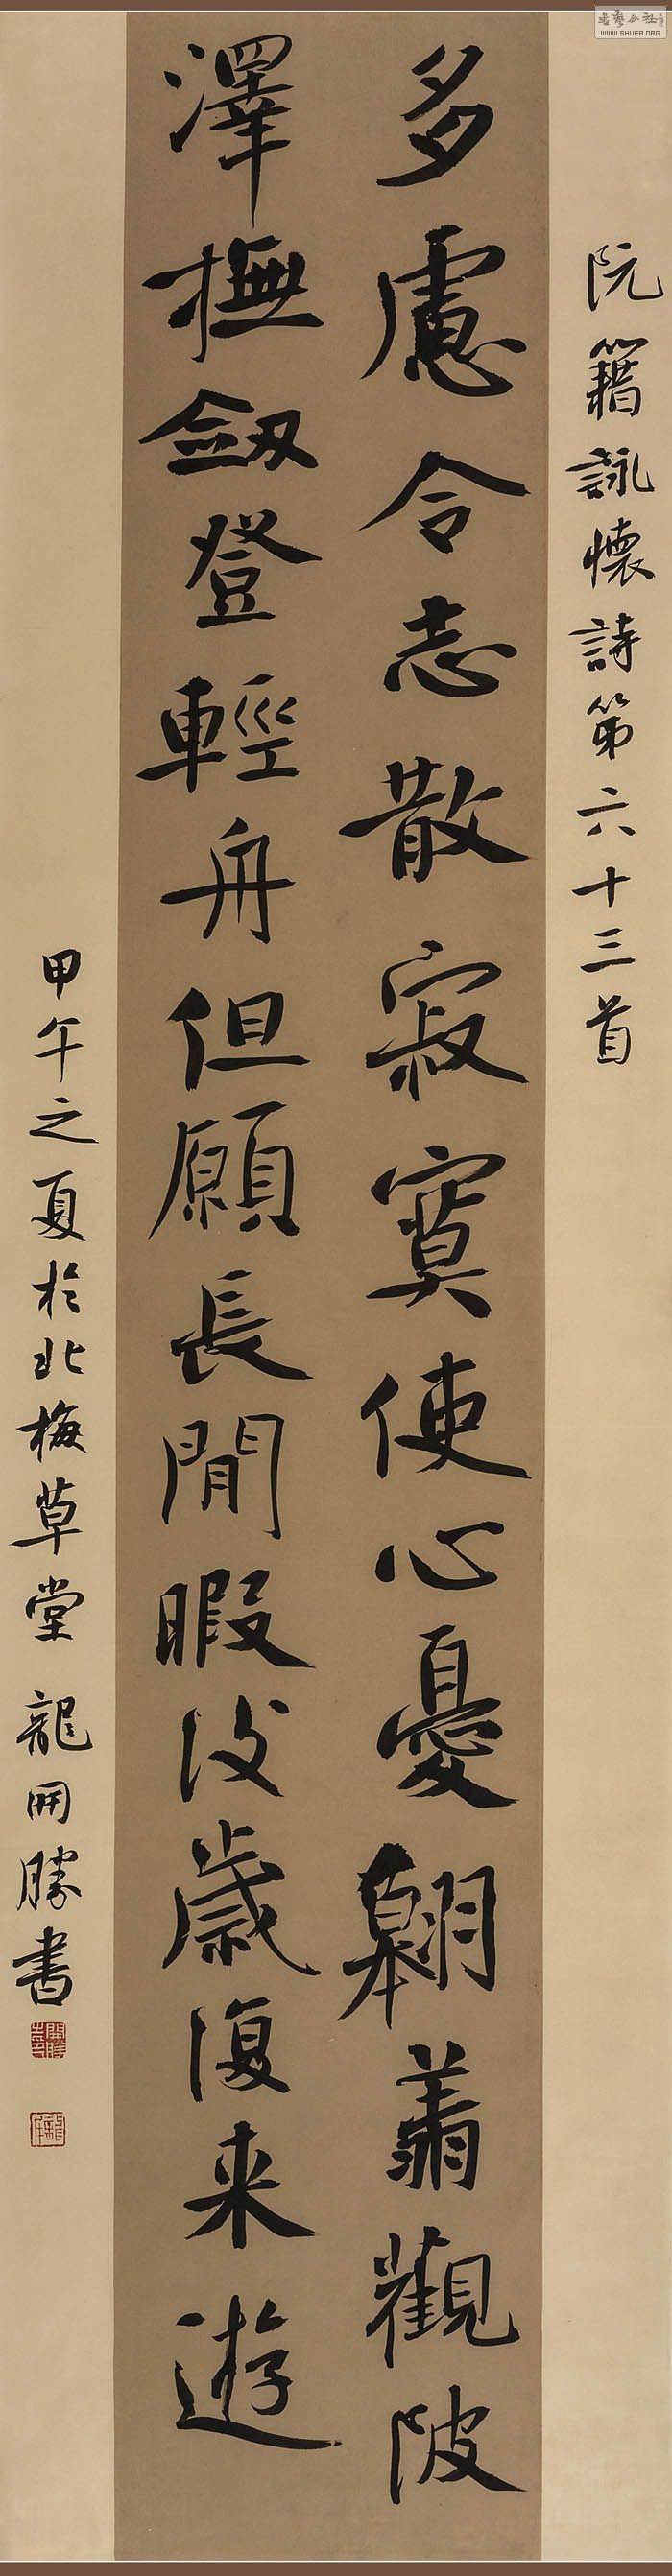 阮籍詠懷詩第六十三首
多慮令志散寂寞使心憂翱翔觀陂
澤撫劒登輕舟但願長閒暇後歲復來遊
甲午之夏於北梅草堂 龍開勝書
WWW.SHUFA.ORG